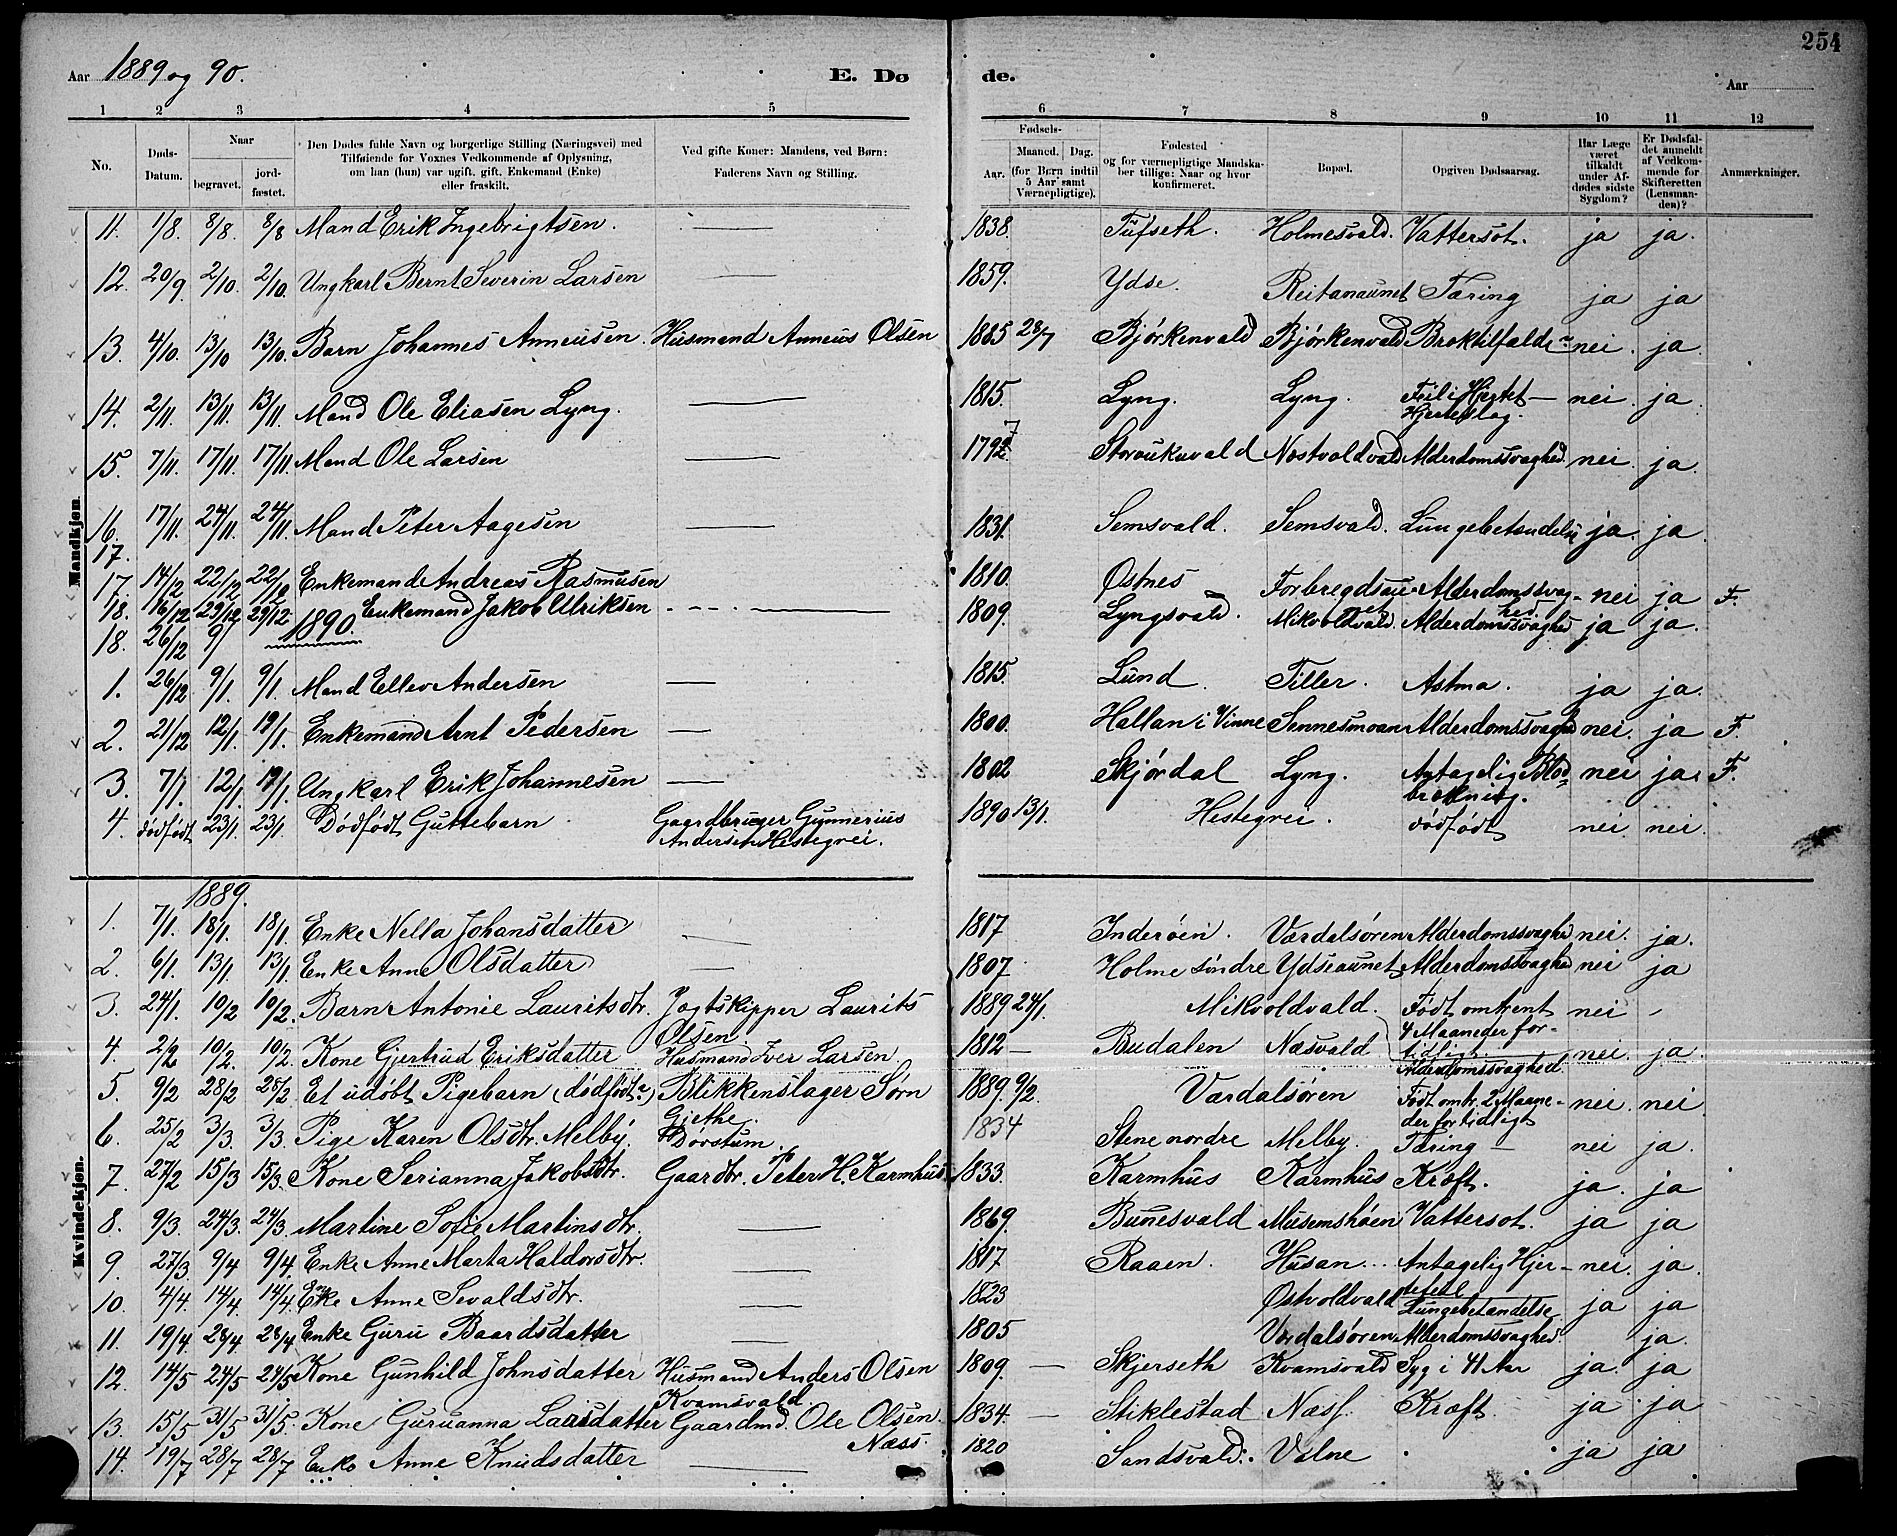 254
Aar 1889 og 90. E. Døde. Aar
1 2 3 4 5 6 7 8 9 10 11 12
No. Døds-Datum. Naar begravet. jordfæstet. Den Dødes fulde Navn og borgerlige Stilling (Næringsvei) med Tilføiende for Voxnes Vedkommende af Oplysning, om han (hun) var ugift, gift, Enkemand (Enke) eller fraskilt. Ved gifte Koner: Mandens, ved Børn: Faderens Navn og Stilling. Fødsels- Aar. Maaned. Dag. (for Børn indtil 5 Aar samt Værnepligtige). Fødested og for værnepligtige Mandskaber tillige: Naar og hvor konfirmeret. Bopæl. Opgiven Dødsaarsag. Har Læge været tilkaldt under Afdødes sidste Sygdom? Er Dødsfaldet anmeldt af Vedkommende for Skifteretten (Lensmanden)? Anmærkninger.
Mandkjøn.
11. 1/8. 8/8. 8/8 Mand Erik Ingebrigtsen. — 1838. Tufseth. Holmesvald. Vattersot. ja ja.
12. 20/9 2/10. 2/10. Ungkarl Bernt Severin Larsen — 1859. Ydse. Reitanaunet Tæring ja ja
13. 4/10. 13/10 13/10. Barn Johannes Anneusen. Husmand Anneus Olsen 1885 23/7 Bjørkenvald Bjørkenvald Broktilfælde nei. ja.
14. 2/11. 13/11. 13/11. Mand Ole Eliasen Lyng. — 1815. Lyng. Lyng. Feil i Hjertet— Hjerteslag. nei. ja.
15. 7/11. 17/11. 17/11. Mand Ole Larsen — 1792 7 Storvukuvald Nestvoldvald Alderdomssvaghed. nei. ja.
16. 17/11. 24/11. 24/11. Mand Peter Aagesen — 1831. Semsvald. Semsvald. Lungebetændelse ja. ja.
17.
17. 14/12 22/12 22/12 Enkemand Andreas Rasmusen 1810. Østnes Forbregdsaunet Alderdomssvaghed nei ja F.
18. 16/12 29/12 29/12 Enkemand Jakob Ulriksen — 1809. Lyngsvald. Mikvoldvald. Alderdomssvaghed ja ja.
18. 26/12 9/ 1890.
1. 26/12 9/1. 9/1. Mand Ellev Andersen — 1815. Lund. Tiller. Astma. ja ja.
2. 21/12 12/1. 19/1. Enkemand Arnt Pedersen — 1800. Hallan i Vinne Sennesmoan Alderdomssvaghed nei. ja F.
3. 7/1. 12/1. 19/1. Ungkarl Erik Johannesen — 1802 Skjørdal Lyng. Antagelig Blodbrækning. nei ja. F.
4. dødfødt 23/1. 23/1. Dødfødt Guttebarn. Gaardbruger Gunnerius Andersen Hestegrei. 1890 13/1. Hestegrei. dødfødt nei. nei.
Kvindekjøn.
1889.
1. 7/1. 18/1. 18/1. Enke Nella Johansdatter — 1817 Inderøen. Værdalsøren Alderdomssvaghed nei. ja.
2. 6/1. 13/1 13/1 Enke Anne Olsdatter — 1807. Holme søndre Ydseaunet Alderdomssvaghed nei ja
3. 24/1. 10/2 10/2. Barn Antonie Lauritsdtr. Jagtskipper Laurits Olsen. 1889 24/1. Mikvoldvald. Født omtrent 4 Maaneder fortidlig. nei -
4. 2/2 10/2. 10/2. Kone Gjertrud Eriksdatter Husmand Iver Larsen. 1812 — Budalen Næsvald Alderdomssvaghed. nei. ja.
5. 9/2 28/2 25/2. Et udøbt Pigebarn (dødfødt?) Blikkenslager Sørn Gjethe. 1889. 9/2. Værdalsøren Født omtr. 2 Maaneder for tidligt nei. nei.
6. 25/2 3/3. 3/3. Pige Karen Olsdtr. Melby. Dørstum. 1834 Stene nordre Melby. Tæring — nei ja.
7. 27/2 15/3 15/3. Kone Serianna Jakobsdtr. Gaardbr. Peter H. Karmhus. 1833. Karmhus Karmhus Kræft. ja. ja
8. 9/3. 24/3. 24/3. Martine Sofie Martinsdtr. — 1869. Bunesvald Musemshøen Vattersot. ja ja
9. 27/3. 9/4 9/4. Enke Anne Marta Haldorsdtr. — 1817 Raaen. Husan. Antagelig Hjertefeil nei. ja.
10. 4/4. 14/4. 14/4. Enke Anne Sevaldsdtr. — 1823 Østvoldvald Lungebetændelse ja ja
11. 19/4. 28/4 28/4 Enke Guru Baardsdatter — 1805 Værdalsøren Alderdomssvaghed. ja.
12. 14/5 24/5 24/5 Kone Gunhild Johnsdatter Husmand Anders Olsen Kvamsvald. 1809. — Skjerseth Kvamsvald Syg i 41 Aar ja. ja
13. 15/5 31/5 31/5. Kone Guruanna Larsdatter Gaardmd. Ole Olsen Næss. 1834. — Stiklestad Næss. Kræft. ja ja
14. 19/7 28/7 28/7 Enke Anne Knudsdatter — 1820 Sandsvald. Valne ja ja